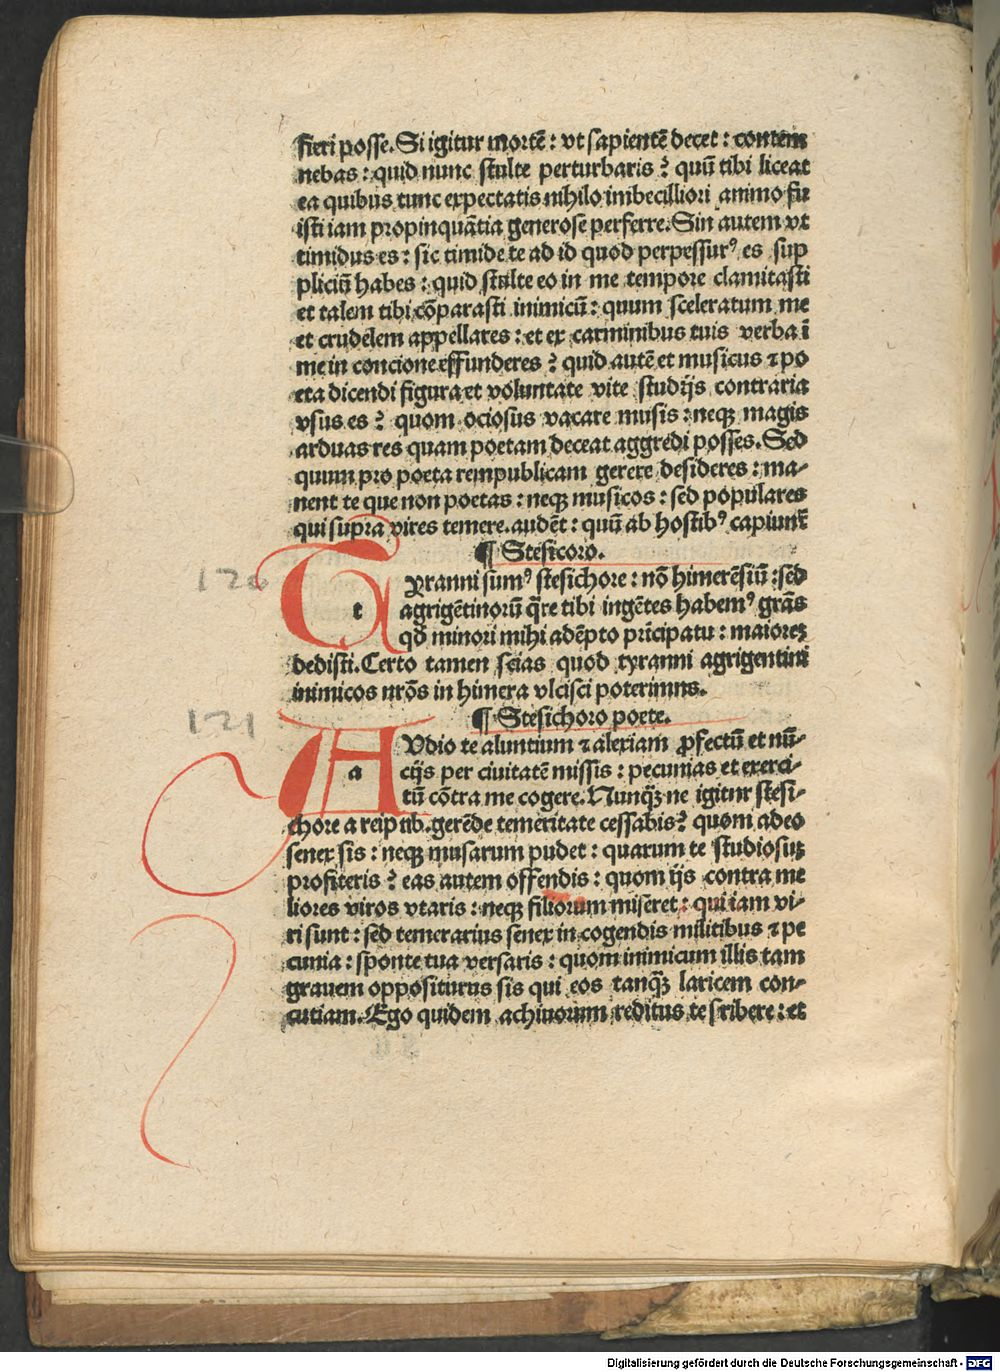 fieri posse. Si igitur mortē: vt sapientē decet: contem
nebas: quid nunc stulte perturbaris? quū tibi liceat
ea quibus tunc expectatis nihilo imbecilliori animo fu
isti iam propinquātia generose perferre. Sin autem vt
timidus es: sic timide te ad id quod perpessurꝰ es sup
pliciū habes: quid stulte eo in me tempore clamitasti
et talem tibi cōparasti inimicū: quum sceleratum me
et crudelem appellares: et ex carminibus tuis verba ī
me in concione effunderes? quid autē et musicus ⁊ po
eta dicendi figura et voluntate vite studijs contraria
vsus es? quom ociosus vacare musis: neqꝫ magis
arduas res quam poetam deceat aggredi posses. Sed
quum pro poeta rempublicam gerere desideres: ma-
nent te que non poetas: neqꝫ musicos: sed populares
qui supra vires temere. audēt: quū ab hostibꝰ capiunt̄
¶ Stesicoro.
120
T t yranni sumꝰ stesichore: nō himerēsiū: sed
agrigētinorū q̄re tibi ingētes habemꝰ grās
qd̄ minori mihi adēpto prīcipatu: maiorez
dedisti. Certo tamen scias quod tyranni agrigentini
inimicos nrōs in himera vlcisci poterimus.
121
¶ Stesichoro poete.
A a Vdio te aluntium ⁊ alexiam ꝓfectū et nū-
cijs per ciuitatē missis: pecunias et exerci-
tū cōtra me cogere. Nunqꝫ ne igitur stesi-
chore a reip ub. gerēde temeritate cessabis? quom adeo
senex sis: neqꝫ musarum pudet: quarum te studiosuꝫ
profiteris? eas autem offendis: quom ijs contra me
liores viros vtaris: neqꝫ filiorum miseret: qui iam vi-
ri sunt: sed temerarius senex in cogendis militibus ⁊ pe
cunia: sponte tua versaris: quom inimicum illis tam
grauem oppositurus sis qui eos tanqꝫ laricem con-
cutiam. Ego quidem achiuorum reditus te scribere: et
Digitalisierung gefördert durch die Deutsche Forschungsgemeinschaft - DFG